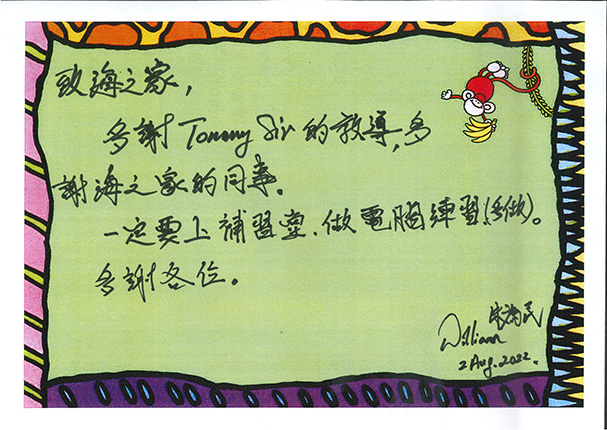 致海之家，
多謝 Tommy Sir 的教導，多
謝海之家的同事。
一定要上補習堂、做電腦練習(多做)。
多謝各位。
William
2 Aug. 2022.